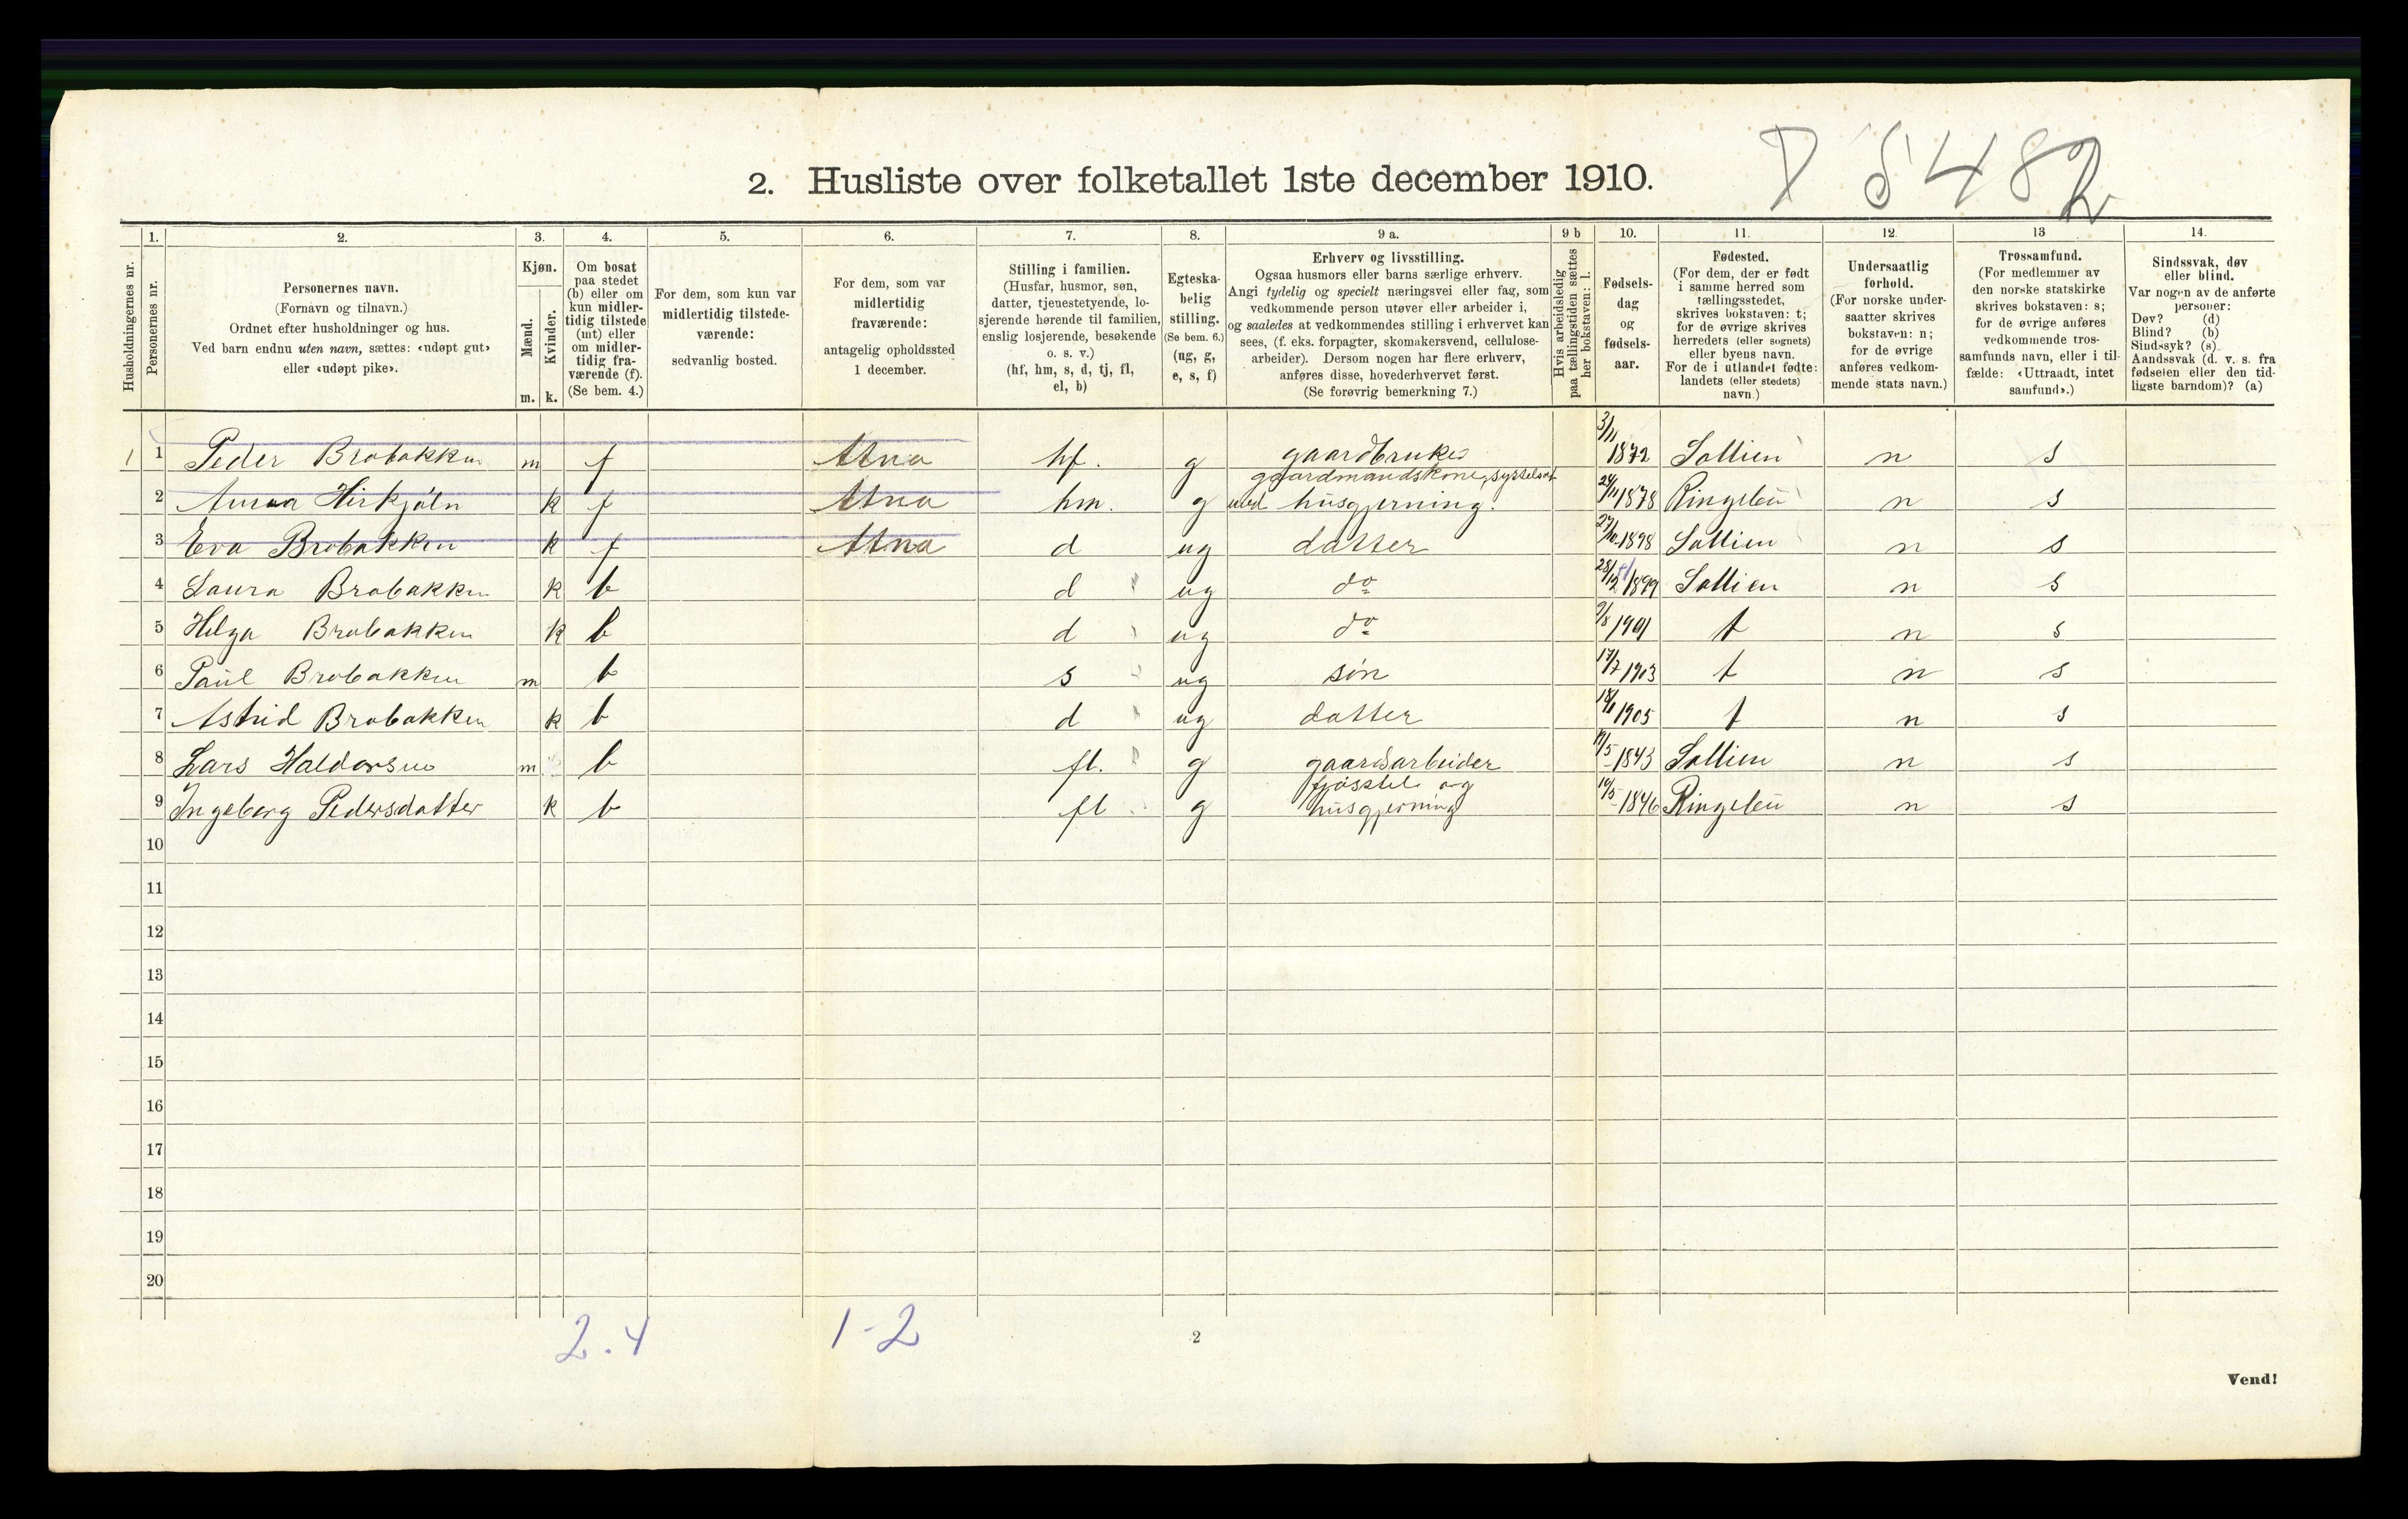 D 5482
2. Husliste over folketallet 1ste december 1910.
1. 2. 3. 4. 5. 6. 7. 8. 9 a. 9 b 10. 11. 12. 13 14.
Husholdningernes nr.
Personernes nr.
Personernes navn.
(Fornavn og tilnavn.)
Ordnet efter husholdninger og hus.
Ved barn endnu uten navn, sættes: «udøpt gut»
eller «udøpt pike».
Kjøn.
Mænd.
Kvinder.
m. k.
Om bosat
paa stedet
(b) eller om
kun midler-
tidig tilstede
(mt) eller
om midler-
tidig fra-
værende (f).
(Se bem. 4.)
For dem, som kun var
midlertidig tilstede-
værende:
sedvanlig bosted.
For dem, som var
midlertidig
fraværende:
antagelig opholdssted
1 december.
Stilling i familien.
(Husfar, husmor, søn,
datter, tjenestetyende, lo-
sjerende hørende til familien,
enslig losjerende, besøkende
o. s. v.)
(hf, hm, s, d, tj, fl,
el, b)
Egteska-
belig
stilling.
(Se bem. 6.)
(ug, g,
e, s, f)
Erhverv og livsstilling.
Ogsaa husmors eller barns særlige erhverv.
Angi tydelig og specielt næringsvei eller fag, som
vedkommende person utøver eller arbeider i,
og saaledes at vedkommendes stilling i erhvervet kan
sees, (f. eks. forpagter, skomakersvend, cellulose-
arbeider). Dersom nogen har flere erhverv,
anføres disse, hovederhvervet først.
(Se forøvrig bemerkning 7.)
Hvis arbeidsledig
paa tællingstiden sættes
her bokstaven: l.
Fødsels-
dag
og
fødsels-
aar.
Fødested.
(For dem, der er født
i samme herred som
tællingsstedet,
skrives bokstaven: t;
for de øvrige skrives
herredets (eller sognets)
eller byens navn.
For de i utlandet fødte:
landets (eller stedets)
navn.)
Undersaatlig
forhold.
(For norske under-
saatter skrives
bokstaven: n;
for de øvrige
anføres vedkom-
mende stats navn.)
Trossamfund.
(For medlemmer av
den norske statskirke
skrives bokstaven: s;
for de øvrige anføres
vedkommende tros-
samfunds navn, eller i til-
fælde: «Uttraadt, intet
samfund».)
Sindssvak, døv
eller blind.
Var nogen av de anførte
personer:
Døv? (d)
Blind? (b)
Sindssyk? (s)
Aandssvak (d. v. s. fra
fødselen eller den tid-
ligste barndom)? (a)
1 1 Peder Brobakken m f Atna hf. g gaardbruker 3/11 1872 Sollien n s
gaardmandskone, sysselsat
2 Anna Hirkjøln k f Atna hm. g med husgjerning. 1878 Ringebu n s
3 Eva Brobakken k f Atna d ug datter 27/10 1898 Sollien n s
4 Laura Brobakken k b d ug do 28/12 1899 Sollien n s
5 Helga Brobakken k b d ug do 1901 t n s
6 Paul Brobakken m b s ug søn 17/7 1903 t n s
7 Astrid Brobakken k b d ug datter 1905 t n s
8 Lars Haldorsen m b fl. g gaardsarbeider 1843 Sollien n s
fjøsstel og
9 Ingeborg Pedersdatter k b fl g husgjerning 10/5 1846 Ringebu n s
10
11
12
13
14
15
16
17
18
19
20
2.4 1-2 2
Vend!